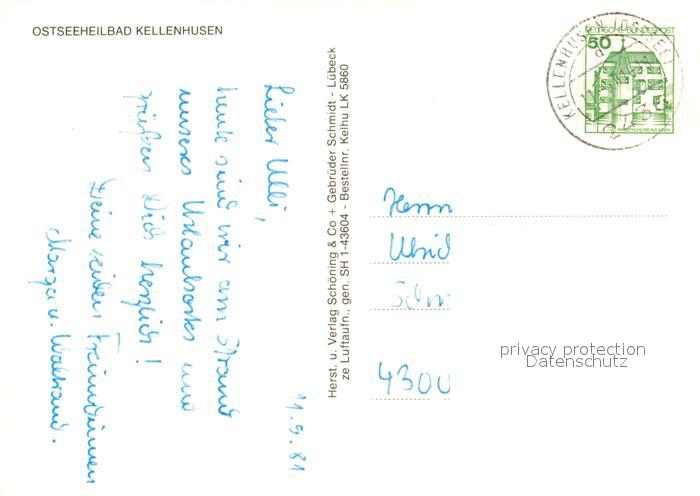 OSTSEEHEILBAD KELLENHUSEN
11.9.81
Lieber Ulli,
heute sind wir am Strand
unseres Urlaubsortes und
grüßen Dich herzlich!
Deine beiden Freundinnen
Marga u. Waltraud.
Herst. u. Verlag Schöning & Co + Gebrüder Schmidt - Lübeck
ze Luftaufn., gen. SH 1-43604 - Bestellnr. Kelhu LK 5860
KELLENHUSEN (OSTSEE)
DEUTSCHE BUNDESPOST
50
Herrn
Ulrid
4300
privacy protection
Datenschutz